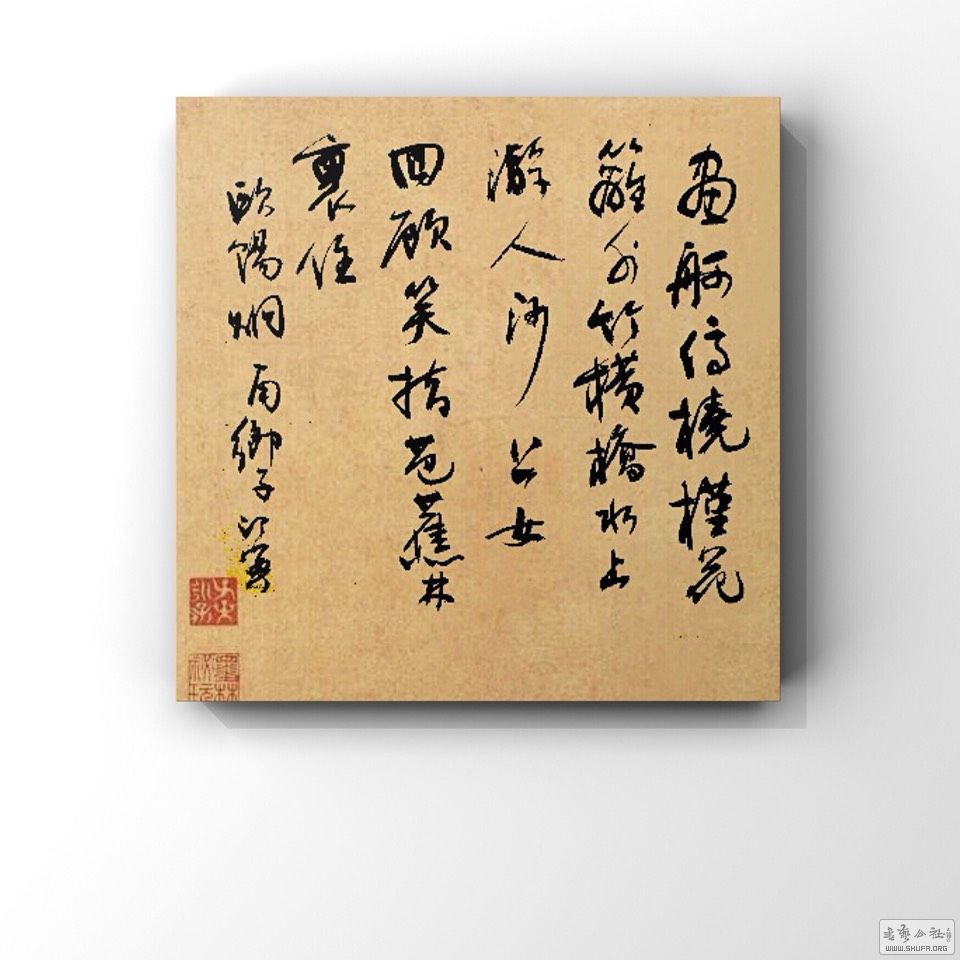 畫舸停橈槿花
籬外竹横橋水上
游人沙上女
回顧笑指芭蕉林
裏住
歐陽炯南鄉子
墨林秘玩
书艺公社
WWW.SHUFA.ORG